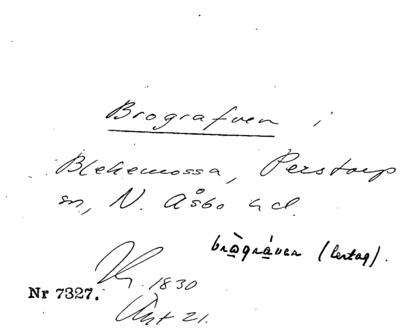 Brografven i
Blekemossa, Perstorp
sn, N. Åsbo hd.
brògráven (lertag).
1830
Nr 7327.
21.